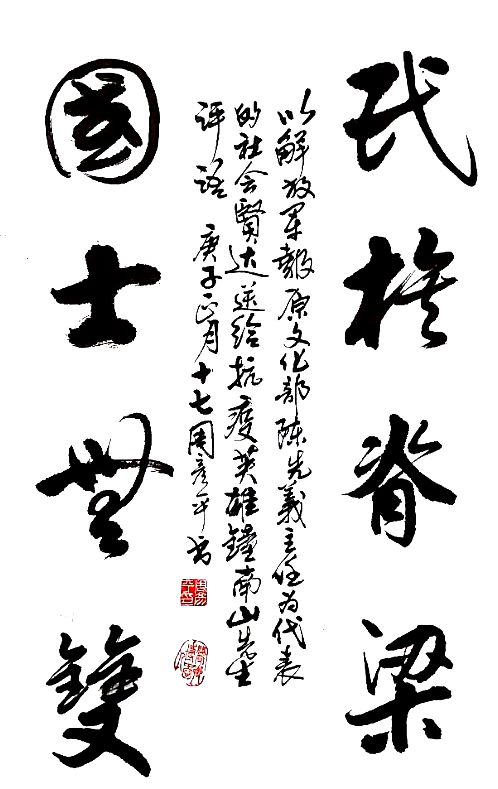 民族脊梁
以解放军報原文化部陈先義主任为代表
的社会賢达送给抗疫英雄鐘南山先生
评語 庚子正月十七周彦平书
國士無雙